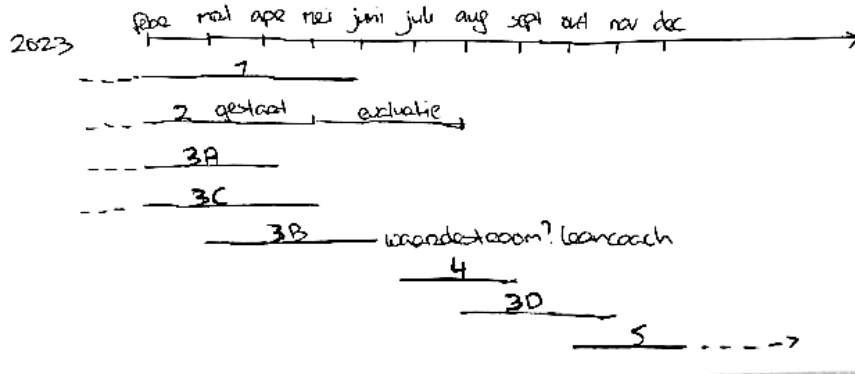 2023 febr mrt apr mei juni juli aug sept okt nov dec
1
2 gestart evaluatie
3A
3C
3B waardestroom? leancoach
4
3D
5